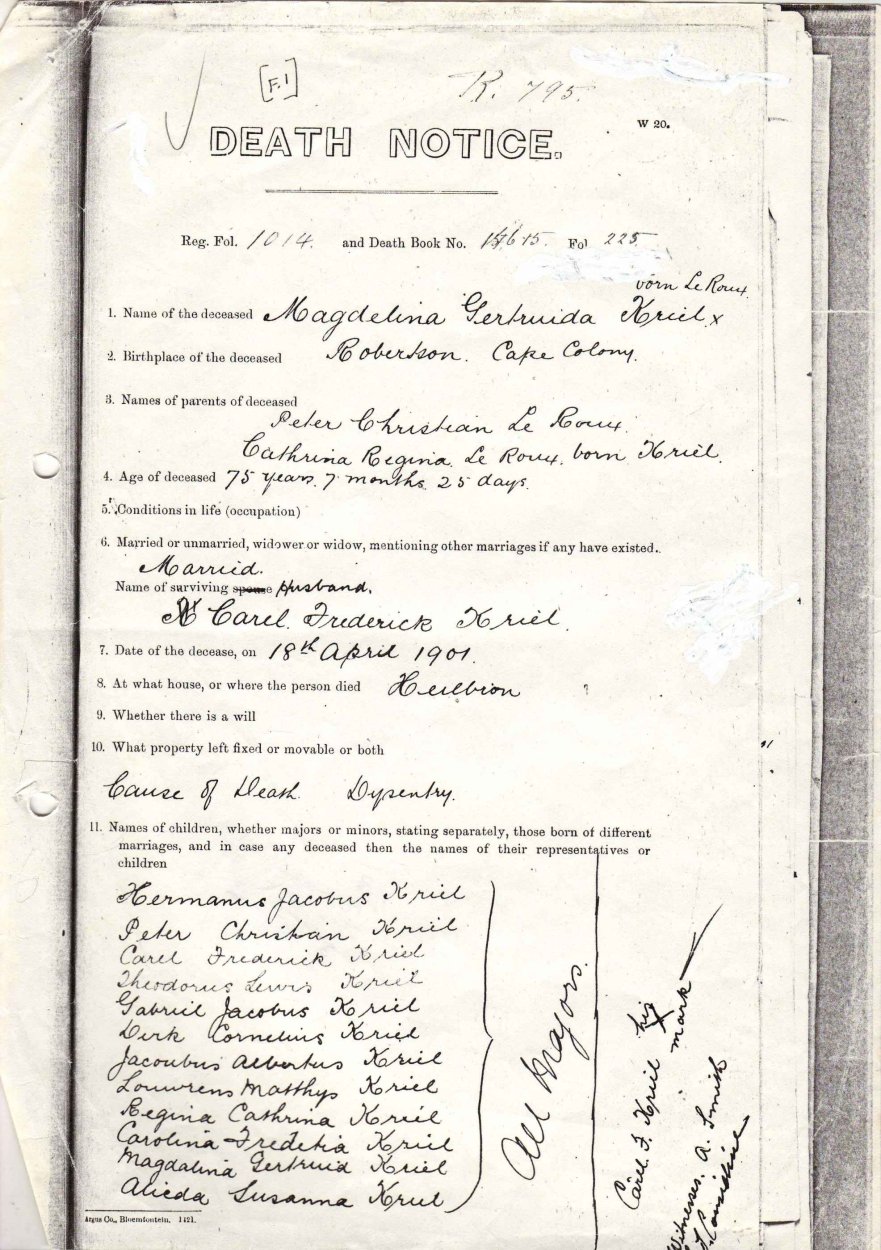 [F.1]
R. 795.
W 20.
DEATH NOTICE.
Reg. Fol. 1014. and Death Book No. Fol 225
born Le Roux
1. Name of the deceased Magdelina Gertruida Kriel x
2. Birthplace of the deceased Robertson. Cape Colony.
3. Names of parents of deceased
Peter Christian Le Roux.
Cathrina Regina. Le Roux. born Kriel.
4. Age of deceased 75 years. 7 months. 25 days.
5. Conditions in life (occupation)
6. Married or unmarried, widower or widow, mentioning other marriages if any have existed.
Married.
Name of surviving spouse Husband.
Carel. Frederick Kriel.
7. Date of the decease, on 18th April 1901.
8. At what house, or where the person died Heilbron ?
9. Whether there is a will
10. What property left fixed or movable or both
Cause of Death. Dysentry.
11. Names of children, whether majors or minors, stating separately, those born of different
marriages, and in case any deceased then the names of their representatives or
children
Hermanus Jacobus Kriel
Peter Christian Kriel
Carel Frederick Kriel
Theodorus Lewis Kriel
Gabriel Jacobus Kriel
Dirk Cornelius Kriel
Jacoubus Albertus Kriel
Louwrens Matthys Kriel
Regina Cathrina Kriel
Carolina Fredetia Kriel
Magdalina Gertruid Kriel
Alieda Susanna Kriel
All Majors.
Carel. F. Kriel his X mark
Witnesses. A. Smith
Argus Co., Bloemfontein. 1421.